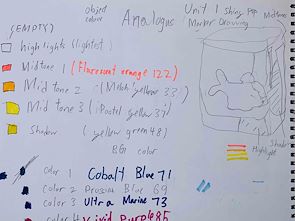 object color
Analogus
Unit 1 Shiny Pop
Marker Drawing
(EMPTY)
high lights (lightest)
Midtone 1 (Fluorescent orange 122)
Mid tone 2 (yellow 33)
Mid tone 3 (Pastel yellow 37)
Shadow (yellow green 48)
BG color
Shadow
Highlight
color 1 Cobalt Blue 71
color 2 Prussian Blue 69
color 3 Ultra Marine 73
color 4 Vivid Purple 85